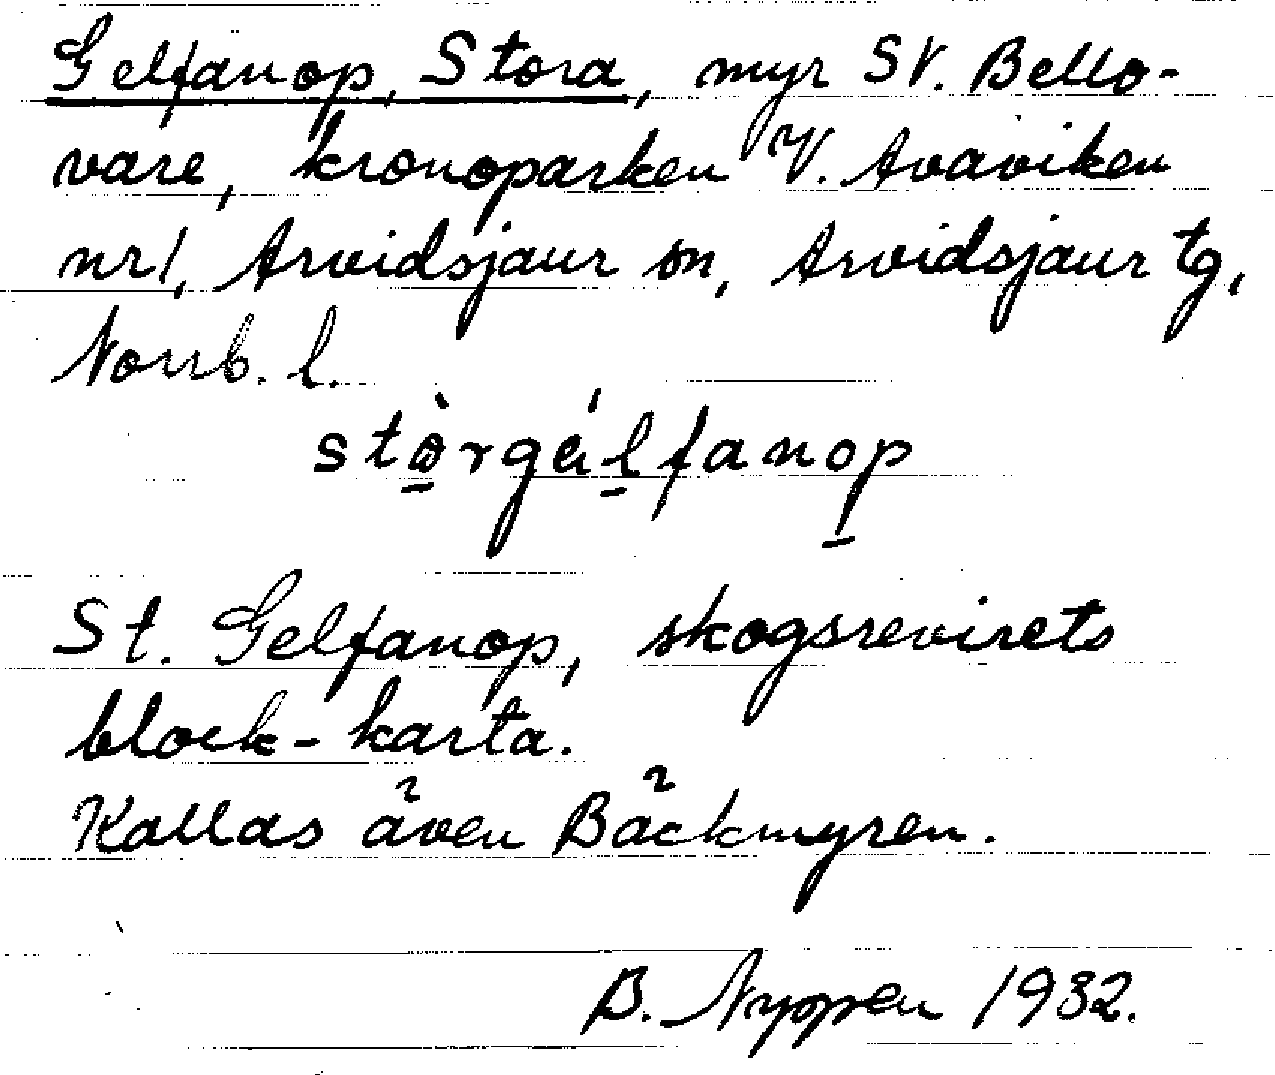 Gelfanop, Stora, myr SV. Bello-
vare, kronoparken V. Avaviken
nr 1, Arvidsjaur sn, Arvidsjaur tg,
Norrb. l.
stòrgálfanop
St. Gelfanop, skogsrevirets
block-karta.
Kallas även Bäckmyren.
B. Nyppen 1932.